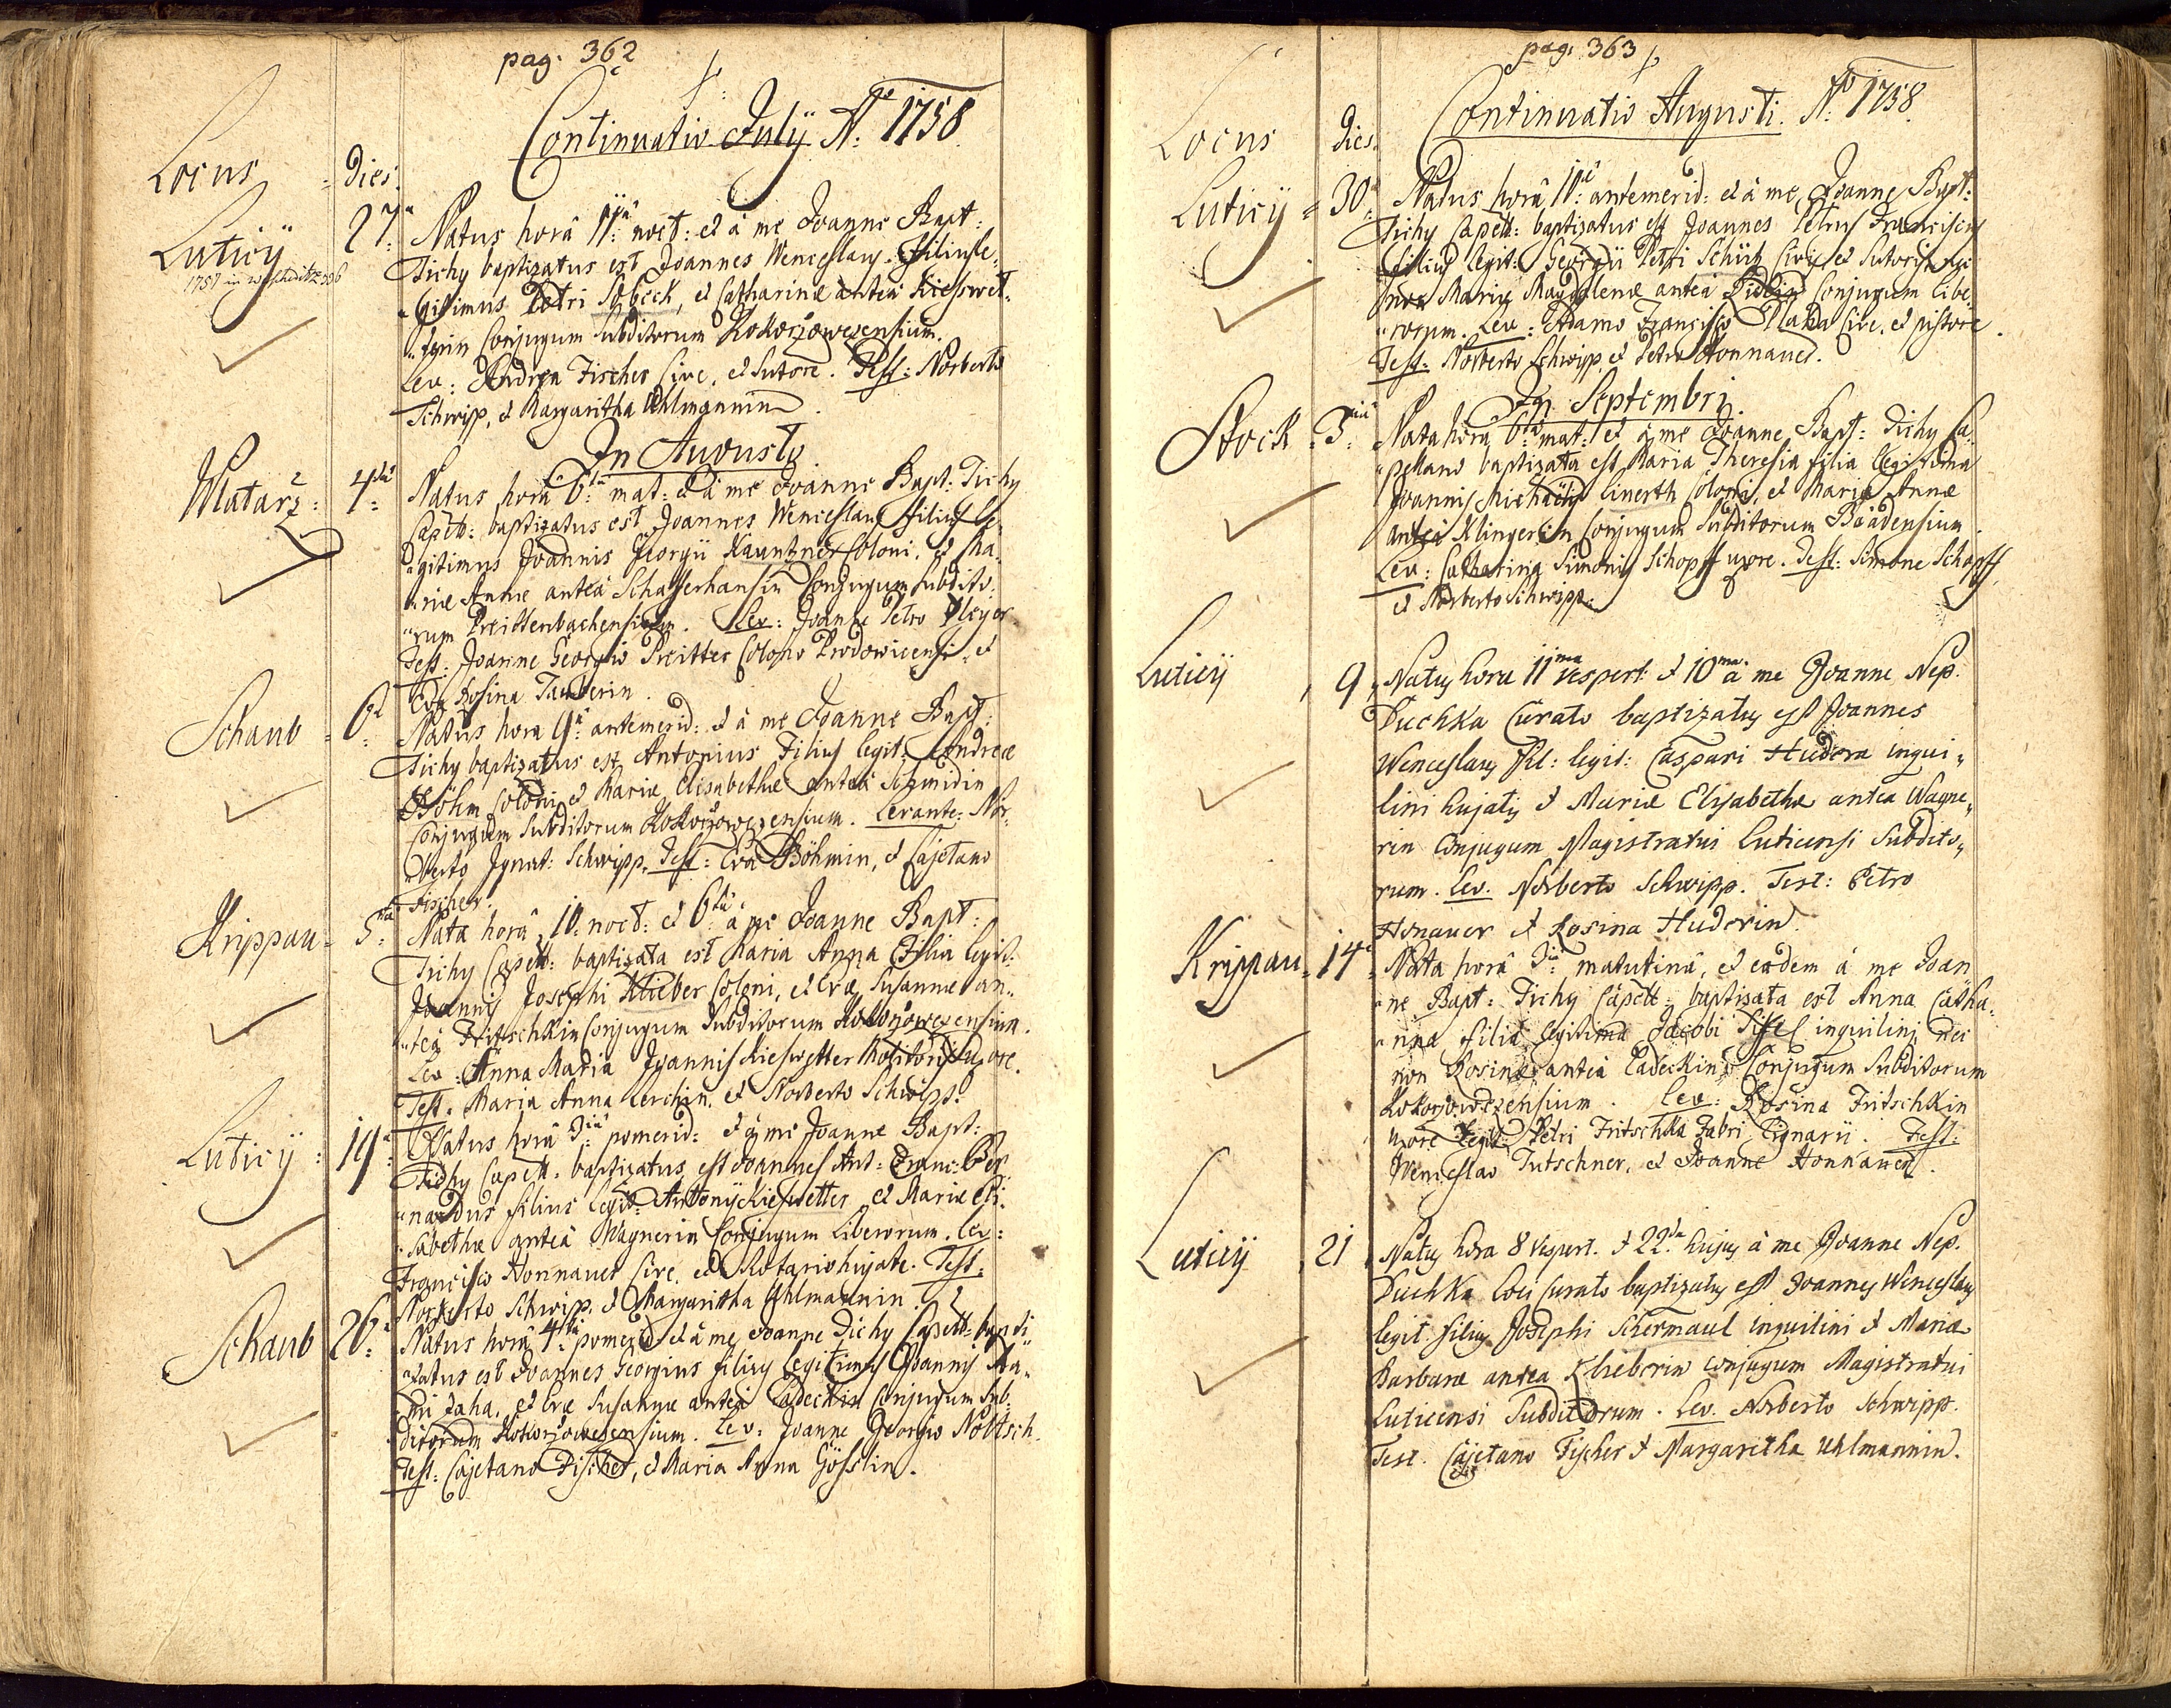 pag. 362
Continuatio Julÿ Aõ 1758.
Locus Dies.
Luticÿ 27a Natus horâ 11â noct: et à me Joanne Bapt:
Tichy baptizatus est Joannes Wenceslaus Filius le-
gitimus Petri Sobeck, et Catharinæ anteà Kieswet-
terin Conjugum Subditorum Kokoržowezensium.
Lev: Andrea Fischer Cive, et Sutore. Test: Norberto
Schwipp, et Margaritha Uhlmannin.
In Augusto
Mlatarž 4ta Natus horâ 6tâ mat: et à me Joanne Bapt: Tichy
Capell: baptizatus est Joannes Wenceslaus filius le-
gitimus Joannis Georgii Kauntzner Coloni, et Ma-
riæ Annæ anteà Schafferhansin Conjugum Subdito-
rum Preittenbachensium. Lev: Joanne Petro Pleyer
Test: Joanne Georgio Preitter Colono Prodowicensi, et
Eva Rosina Tauberin.
Schaub 6a Natus hora 9â antemerid: et à me Joanne Bapt:
Tichy baptizatus est Antonius Filius legit: Andreæ
Böhm Coloni, et Mariæ Elisabethæ anteà Schmidin
Conjugum Subditorum Kokoržowezensium. Levante: Nor-
berto Ignat: Schwipp. Test: Eva Böhmin, et Cajetano
Fischer.
Krippau 5ta Nata horâ 10 noct: et 6tâ à me Joanne Bapt:
Tichy Capell: baptizata est Maria Anna Filia legit:
Joannis Josephi Klieber Coloni, et Evæ Susannæ an-
teà Fritschkin Conjugum Subditorum Kokoržowezensium.
Lev: Anna Maria Joannis Kieswetter Molitoris uxore.
Test: Maria Anna Lerchin, et Norberto Schwipp.
Luticÿ 19a Natus horâ 3iâ pomerid: et à me Joanne Bapt:
Tichy Capell: baptizatus est Joannes Ant: Franc: Ber-
nardus filius legit: Antonÿ Kieswetter, et Mariæ Eli-
sabethæ anteà Wagnerin Conjugum Liberorum. Lev:
Francisco Honnauer Cive, et Notario hujate. Test:
Norberto Schwipp, et Margaritha Uhlmannin.
Schaub 26a Natus horâ 4tâ pomerid: et à me Joanne Tichy Capell: bapti-
zatus est Joannes Georgius filius legitimus Joannis
Zaha, et Evæ Susannæ anteà Ladeckin Conjugum Sub-
ditorum Kokoržowezensium. Lev: Joanne Georgio Nowtsch.
Test: Cajetano Fischer, et Maria Anna Gösslin.
pag. 363
Continuatio Augusti. Aõ 1758.
Locus Dies.
Luticÿ 30a Natus horâ 10â antemerid: et à me Joanne Bapt:
Tichy Capell: baptizatus est Joannes Petrus Franciscus
filius legit: Georgii Petri Schütz Civis et Sutoris nec
non Mariæ Magdalenæ anteà Conjugum Libe-
rorum. Lev: Adamo Francisco Plaha Cive, et pistore.
Test: Norberto Schwipp, et Petro Honnauer.
In Septembri.
Stock 3tiâ Nata horâ 6tâ mat: et à me Joanne Bapt: Tichy Ca-
pellano baptizata est Maria Theresia filia legitima
Joannis Michaelis Linerth Coloni, et Mariæ Annæ
anteà Klingerin Conjugum Subditorum Baadensium.
Lev: Catharina Simonis Schopff uxore. Test: Simone Schopff,
et Norberto Schwipp.
Luticÿ 9 Natus hora 11ma Vespert: et 10ma à me Joanne Nep.
Duchka Curato baptizatus est Joannes
Wenceslaus fil: legit: Caspari Hudera inqui-
lini hujatis et Mariæ Elisabethæ antea Wagne-
rin Conjugum Magistratui Luticensi Subdito-
rum. Lev. Norberto Schwipp. Test: Petro
Honauer et Rosina Huderin.
Krippau 14a Nata horâ 3iâ matutinâ, et eâdem à me Joan-
ne Bapt: Tichy Capell: baptizata est Anna Catha-
rina filia legitima Jacobi inquilini nec
non Rosinæ anteà Ladeckin Conjugum Subditorum
Kokoržowezensium. Lev: Rosina Fritschkin
uxore legit: Petri Fritschka Fabri Lignarii. Test:
Wenceslao Tutschner, et Joanne Honnauer.
Luticÿ 21 Natus hora 8 Vespert. et 22da hujus à me Joanne Nep.
Duchka Loci Curato baptizatus est Joannes Wenceslaus
legit. filius Josephi Schermaul inquilini et Mariæ
Barbaræ antea Klieberin conjugum Magistratui
Luticensi Subditorum. Lev. Norberto Schwipp.
Test. Cajetano Fischer et Margaretha Uhlmannin.